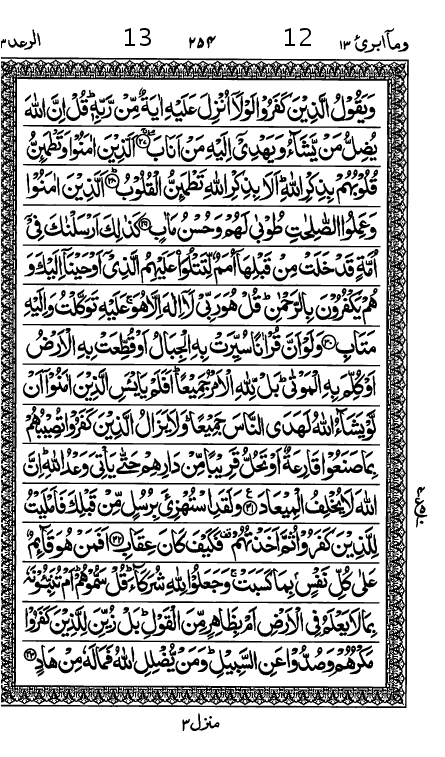 الرعد ١٣ 13 ٢٥٤ 12 ومآ ابرئ ١٣
وَيَقُولُ الَّذِيْنَ كَفَرُوْا لَوْلَآ اُنْزِلَ عَلَيْهِ اٰيَةٌ مِّنْ رَّبِّهٖ ؕ قُلْ اِنَّ اللّٰهَ
يُضِلُّ مَنْ يَّشَآءُ وَيَهْدِىْٓ اِلَيْهِ مَنْ اَنَابَ ۖۚ‏﴿۲۷﴾ اَلَّذِيْنَ اٰمَنُوْا وَتَطْمَئِنُّ
قُلُوْبُهُمْ بِذِكْرِ اللّٰهِ ؕ اَلَا بِذِكْرِ اللّٰهِ تَطْمَئِنُّ الْقُلُوْبُ ؕ‏﴿۲۸﴾ اَلَّذِيْنَ اٰمَنُوْا
وَعَمِلُوا الصّٰلِحٰتِ طُوْبٰى لَهُمْ وَحُسْنُ مَاٰبٍ‏﴿۲۹﴾ كَذٰلِكَ اَرْسَلْنٰكَ فِىْٓ
اُمَّةٍ قَدْ خَلَتْ مِنْ قَبْلِهَاۤ اُمَمٌ لِّتَتْلُوَا۟ عَلَيْهِمُ الَّذِىْۤ اَوْحَيْنَاۤ اِلَيْكَ وَ
هُمْ يَكْفُرُوْنَ بِالرَّحْمٰنِ ؕ قُلْ هُوَ رَبِّىْ لَاۤ اِلٰهَ اِلَّا هُوَ ۚ عَلَيْهِ تَوَكَّلْتُ وَاِلَيْهِ
مَتَابِ‏﴿۳۰﴾ وَلَوْ اَنَّ قُرْاٰنًا سُيِّرَتْ بِهِ الْجِبَالُ اَوْ قُطِّعَتْ بِهِ الْاَرْضُ
اَوْ كُلِّمَ بِهِ الْمَوْتٰى ؕ بَلْ لِّلّٰهِ الْاَمْرُ جَمِيْعًا ؕ اَفَلَمْ يَا۟يْـئَسِ الَّذِيْنَ اٰمَنُوْۤا اَنْ
لَّوْ يَشَآءُ اللّٰهُ لَهَدَى النَّاسَ جَمِيْعًا ؕ وَلَا يَزَالُ الَّذِيْنَ كَفَرُوْا تُصِيْبُهُمْ
بِمَا صَنَعُوْا قَارِعَةٌ اَوْ تَحُلُّ قَرِيْبًا مِّنْ دَارِهِمْ حَتّٰى يَاْتِىَ وَعْدُ اللّٰهِ ؕ اِنَّ
اللّٰهَ لَا يُخْلِفُ الْمِيْعَادَ‏﴿۳۱﴾ وَلَقَدِ اسْتُهْزِئَ بِرُسُلٍ مِّنْ قَبْلِكَ فَاَمْلَيْتُ
لِلَّذِيْنَ كَفَرُوْا ثُمَّ اَخَذْتُهُمْ فَكَيْفَ كَانَ عِقَابِ‏﴿۳۲﴾ اَفَمَنْ هُوَ قَآئِمٌ
عَلٰى كُلِّ نَفْسٍۢ بِمَا كَسَبَتْ ۚ وَجَعَلُوْا لِلّٰهِ شُرَكَآءَ ؕ قُلْ سَمُّوْهُمْ ؕ اَمْ تُنَبِّئُوْنَهٗ
بِمَا لَا يَعْلَمُ فِى الْاَرْضِ اَمْ بِظَاهِرٍ مِّنَ الْقَوْلِ ؕ بَلْ زُيِّنَ لِلَّذِيْنَ كَفَرُوْا
مَكْرُهُمْ وَصُدُّوْا عَنِ السَّبِيْلِ ؕ وَمَنْ يُّضْلِلِ اللّٰهُ فَمَا لَهٗ مِنْ هَادٍ‏﴿۳۳﴾
منزل ٣